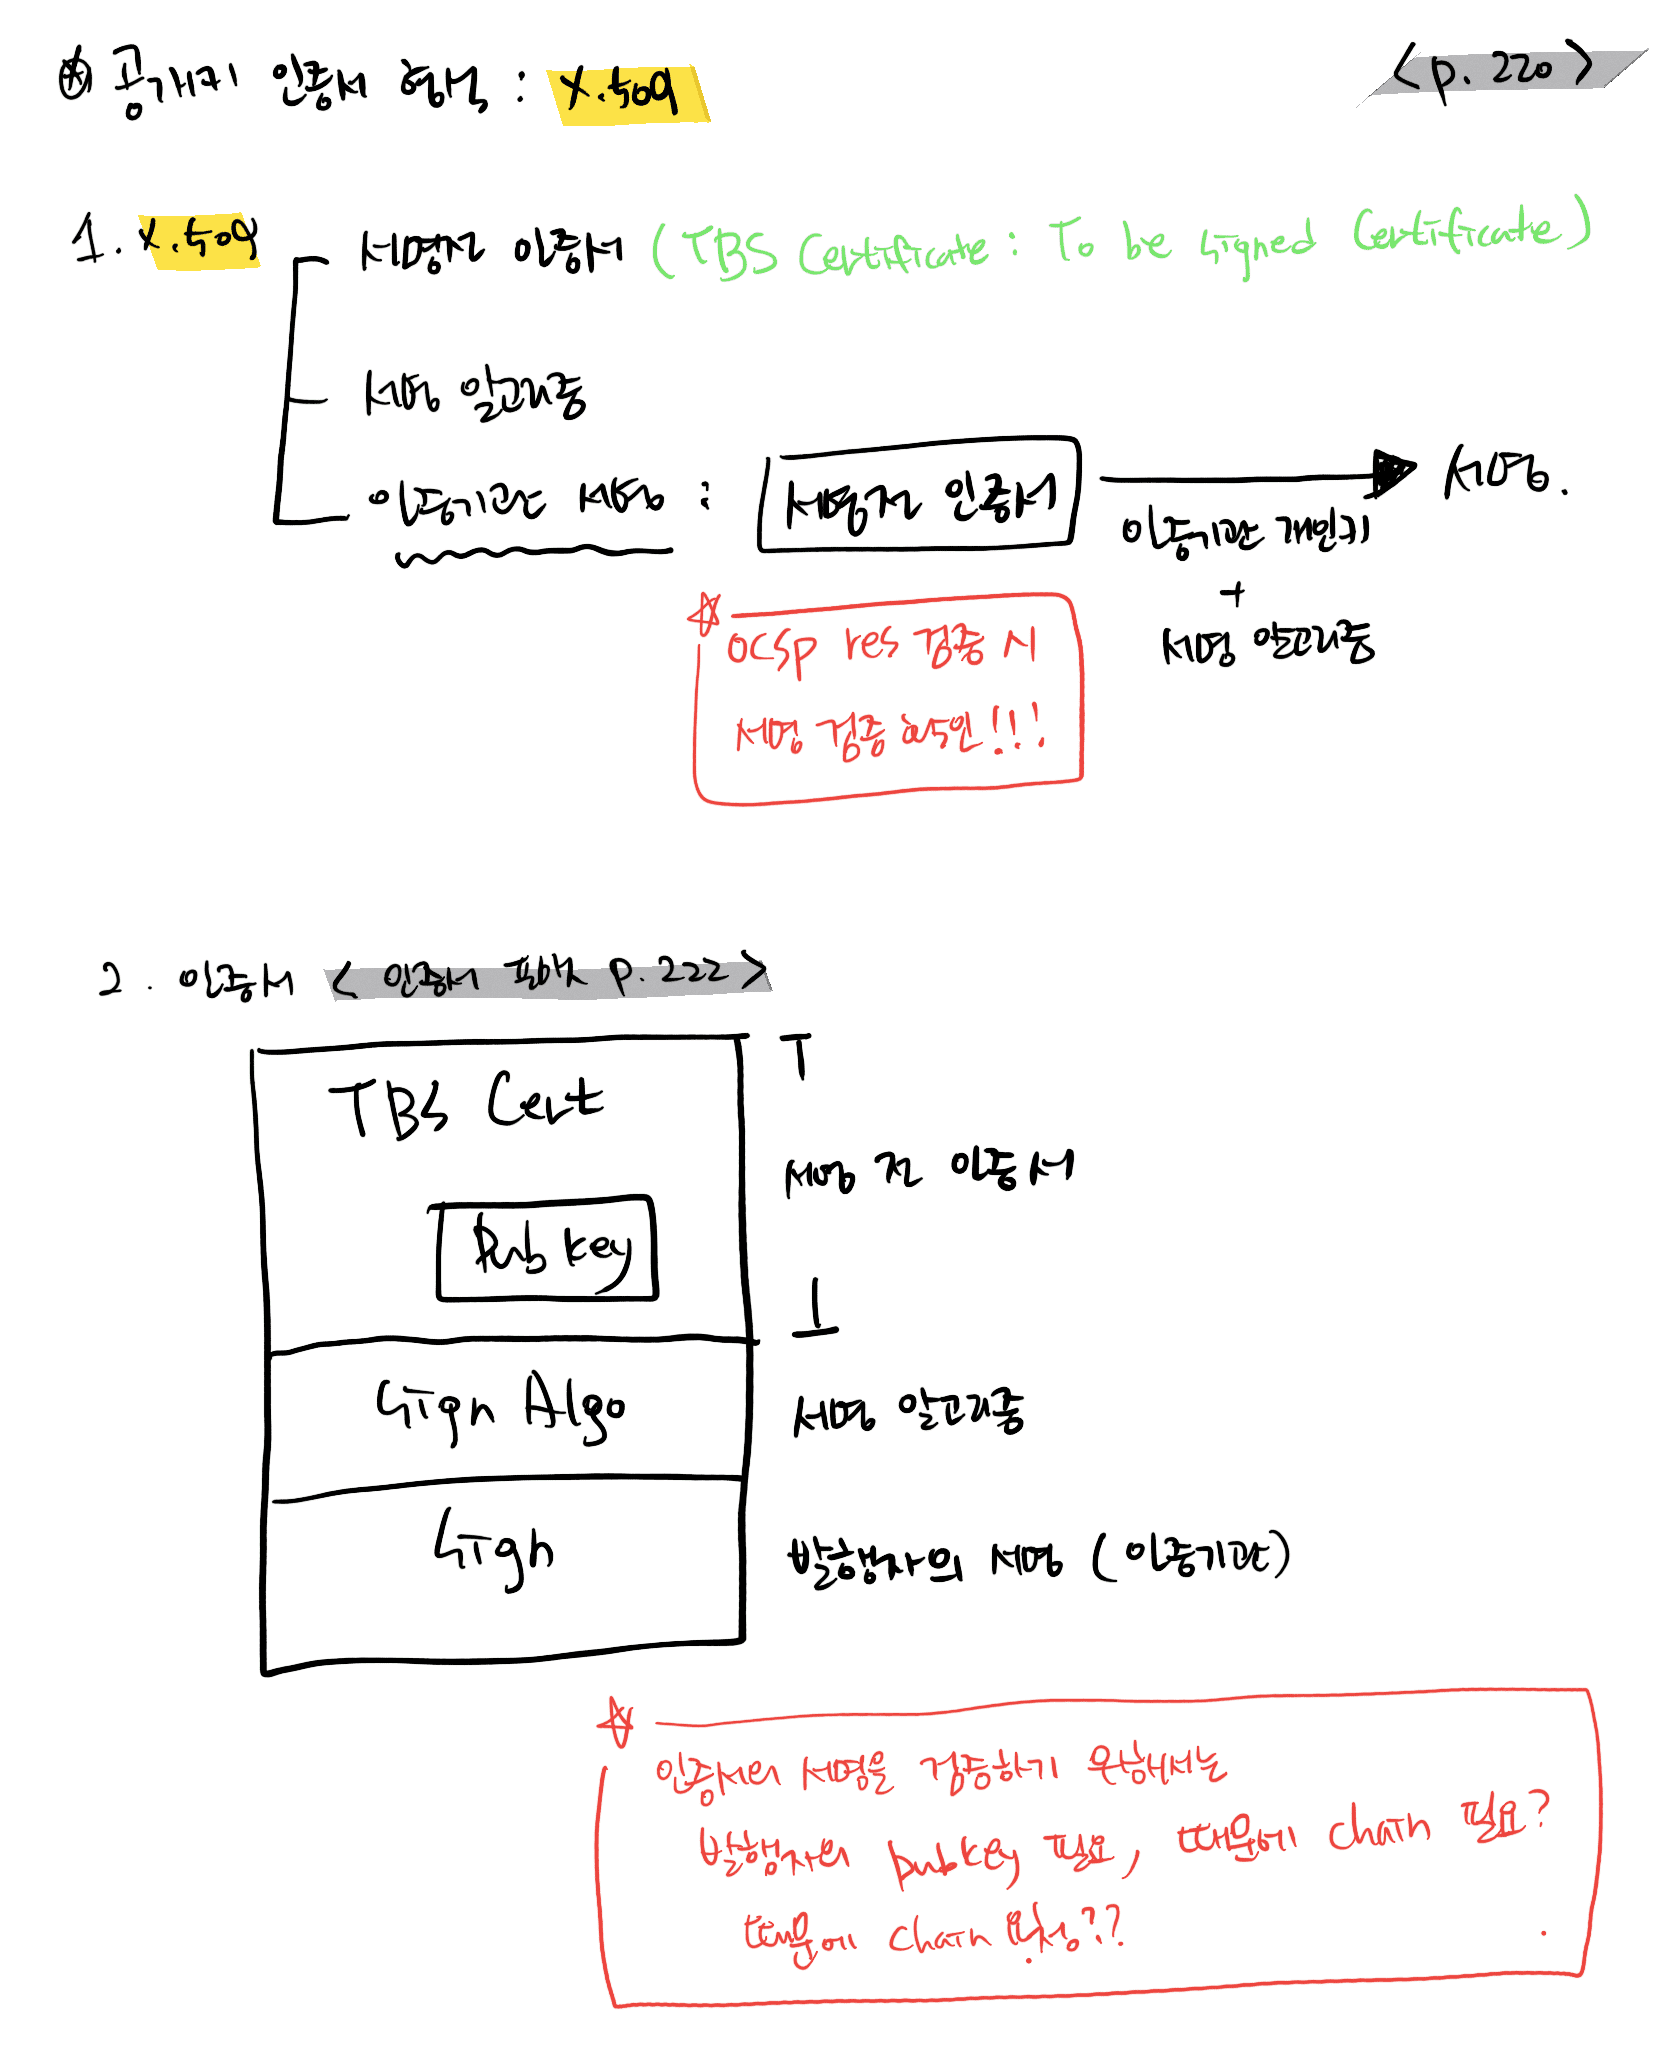 공개키 인증서 형식 : X.509
<p. 220>
1. X.509
서명전 인증서 (TBS Certificate : To be signed Certificate)
서명 알고리즘
인증기관 서명 : 서명전 인증서 서명.
인증기관 개인키
+
서명 알고리즘
OCSP res 검증 시
서명 검증 확인!!!
2. 인증서 <인증서 포맷 p.222>
TBS Cert
서명 전 인증서
Pub key
Sign Algo
서명 알고리즘
Sign
발행자의 서명 (인증기관)
인증서의 서명을 검증하기 위해서는
발행자의 pubkey 필요, 때문에 chain 필요?
때문에 chain 요청??